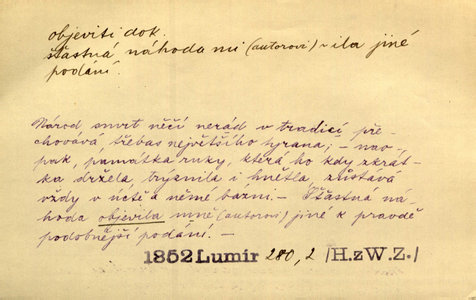 objeviti dok.
šťastná náhoda mi (autorovi) ~ila jiné
podání.
Národ smrt něčí nerád v tradici pře-
chovává, třebas největšího tyrana; – nao-
pak, památka ruky, která ho kdy zkrát-
ka držela, trýznila i hnětla, zůstává
vždy v úctě a němé bázni. – Šťastná ná-
hoda objevila mně (autorovi) jiné k pravdě
podobnější podání. –
1852 Lumír 280,2 /H.zW.Z./